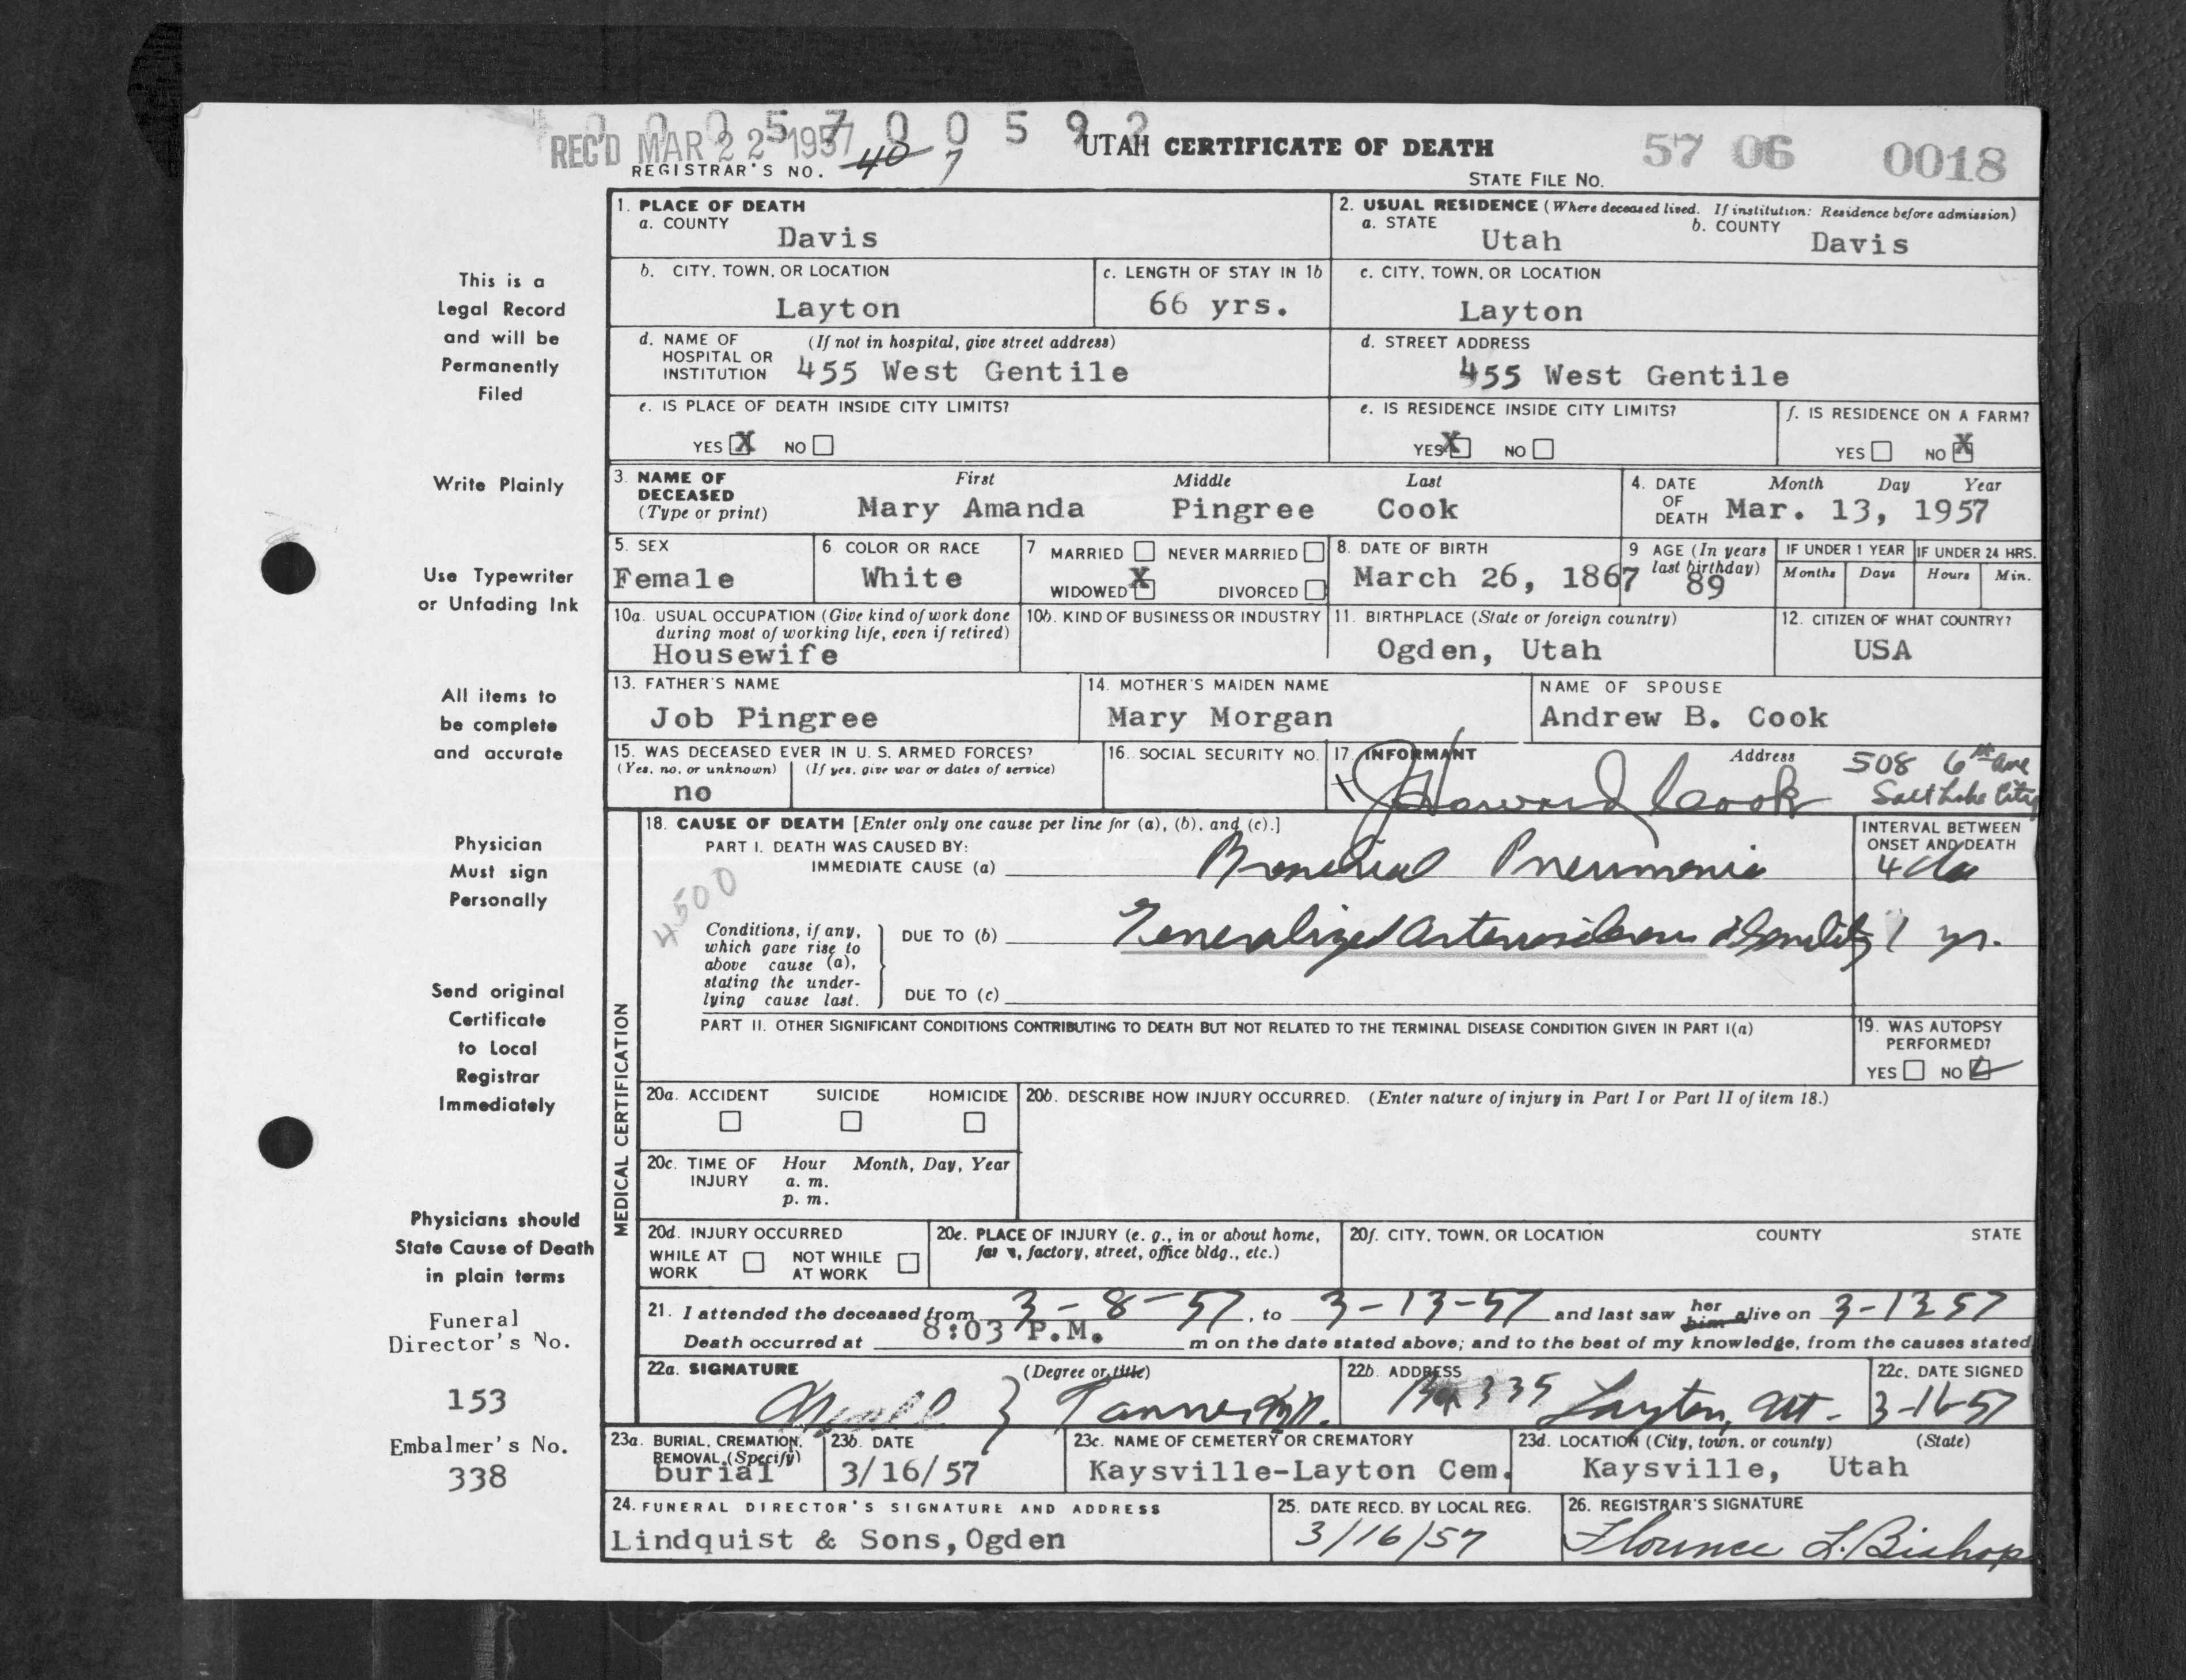 0 0 0 5 7 0 0 5 9 2
REC'D MAR 22 1957
UTAH CERTIFICATE OF DEATH
57 06 0018
REGISTRAR'S NO. 40 7
STATE FILE NO.
1. PLACE OF DEATH
a. COUNTY
Davis
2. USUAL RESIDENCE (Where deceased lived. If institution: Residence before admission)
a. STATE
Utah
b. COUNTY
Davis
b. CITY, TOWN, OR LOCATION
Layton
c. LENGTH OF STAY IN 1b
66 yrs.
c. CITY, TOWN, OR LOCATION
Layton
d. NAME OF HOSPITAL OR INSTITUTION
(If not in hospital, give street address)
455 West Gentile
d. STREET ADDRESS
455 West Gentile
e. IS PLACE OF DEATH INSIDE CITY LIMITS?
YES X NO
e. IS RESIDENCE INSIDE CITY LIMITS?
YES X NO
f. IS RESIDENCE ON A FARM?
YES NO X
3. NAME OF DECEASED
(Type or print)
First Middle Last
Mary Amanda Pingree Cook
4. DATE OF DEATH
Month Day Year
Mar. 13, 1957
5. SEX
Female
6. COLOR OR RACE
White
7 MARRIED NEVER MARRIED
WIDOWED X DIVORCED
8. DATE OF BIRTH
March 26, 1867
9 AGE (In years last birthday)
89
IF UNDER 1 YEAR
Months Days
IF UNDER 24 HRS.
Hours Min.
10a. USUAL OCCUPATION (Give kind of work done
during most of working life, even if retired)
Housewife
10b. KIND OF BUSINESS OR INDUSTRY
11. BIRTHPLACE (State or foreign country)
Ogden, Utah
12. CITIZEN OF WHAT COUNTRY?
USA
13. FATHER'S NAME
Job Pingree
14. MOTHER'S MAIDEN NAME
Mary Morgan
NAME OF SPOUSE
Andrew B. Cook
15. WAS DECEASED EVER IN U. S. ARMED FORCES?
(Yes, no, or unknown) (If yes, give war or dates of service)
no
16. SOCIAL SECURITY NO.
17. INFORMANT Address
J Howard Cook
508 6th Ave
Salt Lake City
MEDICAL CERTIFICATION
18. CAUSE OF DEATH [Enter only one cause per line for (a), (b), and (c).]
PART I. DEATH WAS CAUSED BY:
IMMEDIATE CAUSE (a) Bronchial Pneumonia
INTERVAL BETWEEN
ONSET AND DEATH
4 da
4500
Conditions, if any,
which gave rise to
above cause (a),
stating the under-
lying cause last.
DUE TO (b) Generalized Arteriosclerosis & Senility 1 yr.
DUE TO (c)
PART II. OTHER SIGNIFICANT CONDITIONS CONTRIBUTING TO DEATH BUT NOT RELATED TO THE TERMINAL DISEASE CONDITION GIVEN IN PART I(a)
19. WAS AUTOPSY
PERFORMED?
YES NO
20a. ACCIDENT SUICIDE HOMICIDE
20b. DESCRIBE HOW INJURY OCCURRED. (Enter nature of injury in Part I or Part II of item 18.)
20c. TIME OF INJURY
Hour Month, Day, Year
a. m.
p. m.
20d. INJURY OCCURRED
WHILE AT WORK NOT WHILE AT WORK
20e. PLACE OF INJURY (e. g., in or about home,
farm, factory, street, office bldg., etc.)
20f. CITY, TOWN, OR LOCATION COUNTY STATE
21. I attended the deceased from 3-8-57, to 3-13-57 and last saw her him alive on 3-13 57
Death occurred at 8:03 P.M. m on the date stated above; and to the best of my knowledge, from the causes stated
22a. SIGNATURE (Degree or title)
Tanner M.D.
22b. ADDRESS
Box 335 Layton, Ut-
22c. DATE SIGNED
3-16-57
23a. BURIAL, CREMATION,
REMOVAL (Specify)
burial
23b. DATE
3/16/57
23c. NAME OF CEMETERY OR CREMATORY
Kaysville-Layton Cem.
23d. LOCATION (City, town, or county) (State)
Kaysville, Utah
24. FUNERAL DIRECTOR'S SIGNATURE AND ADDRESS
Lindquist & Sons, Ogden
25. DATE RECD. BY LOCAL REG.
3/16/57
26. REGISTRAR'S SIGNATURE
Florence L. Bishop
This is a
Legal Record
and will be
Permanently
Filed
Write Plainly
Use Typewriter
or Unfading Ink
All items to
be complete
and accurate
Physician
Must sign
Personally
Send original
Certificate
to Local
Registrar
Immediately
Physicians should
State Cause of Death
in plain terms
Funeral
Director's No.
153
Embalmer's No.
338